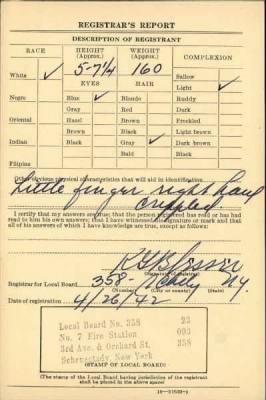 REGISTRAR'S REPORT
DESCRIPTION OF REGISTRANT
RACE HEIGHT (Approx.) WEIGHT (Approx.) COMPLEXION
White ✓ 5-7¼ 160 Sallow
EYES HAIR Light ✓
Negro Blue ✓ Blonde Ruddy
Gray Red Dark
Oriental Hazel Brown Freckled
Brown Black Light brown
Indian Black Gray ✓ Dark brown
Bald Black
Filipino
Other obvious physical characteristics that will aid in identification
Little finger right hand
crippled
I certify that my answers are true; that the person registered has read or has had
read to him his own answers; that I have witnessed his signature or mark and that
all of his answers of which I have knowledge are true, except as follows:
Registrar for Local Board 358 NY
(Number) (City or county) (State)
Date of registration 4/26/42
Local Board No. 358 23
No. 7 Fire Station 093
3rd Ave. & Orchard St. 358
Schenectady, New York
(STAMP OF LOCAL BOARD)
(The stamp of the Local Board having jurisdiction of the registrant
shall be placed in the above space)